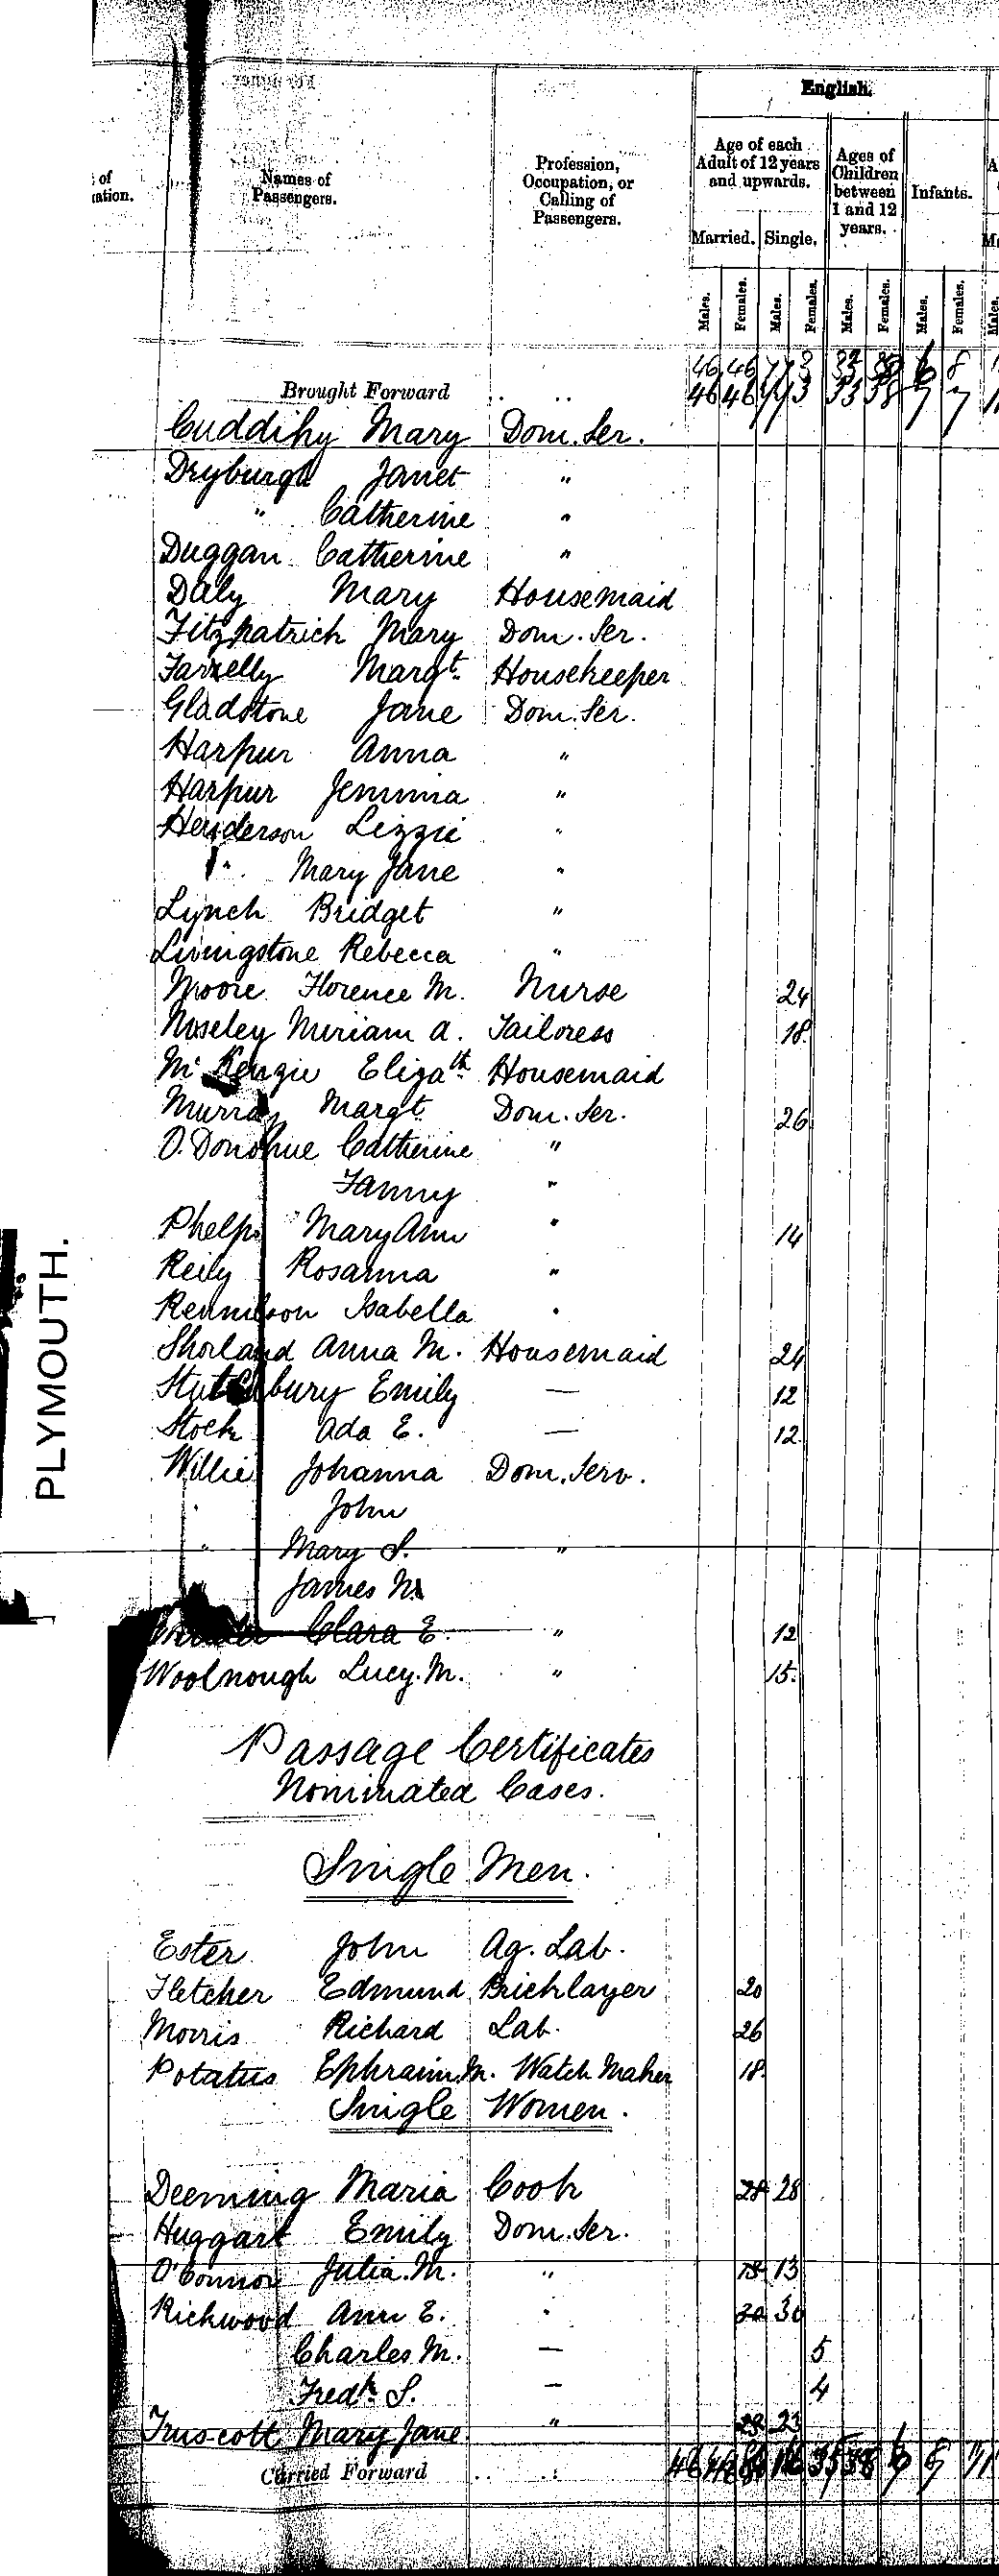 English.
of
ation.
Names of
Passengers.
Profession,
Occupation, or
Calling of
Passengers.
Age of each
Adult of 12 years
and upwards.
Ages of
Children
between
1 and 12
years.
Infants.
Married. Single.
Males. Females. Males. Females. Males. Females. Males. Females. Males.
46 46 77 3
Brought Forward 46 46
Cuddihy Mary Dom. Ser.
Dryburgh Janet "
" Catherine "
Duggan Catherine "
Daly Mary Housemaid
Fitzpatrick Mary Dom. Ser.
Farrelly Margt. Housekeeper
Gladstone Jane Dom. Ser.
Harpur Anna "
Harpur Jemima "
Henderson Lizzie "
". Mary Jane "
Lynch Bridget "
Livingstone Rebecca "
Moore Florence M. Nurse 24
Moseley Miriam A. Tailoress 18
McKenzie Elizath. Housemaid
Murray Margt. Dom. Ser. 26
O.Donohue Catherine "
Fanny "
Phelps Mary Ann " 14
Reily Rosanna "
Rennison Isabella "
Shorland Anna M. Housemaid 24
Emily — 12
Stock Ada E. — 12
Willie Johanna Dom. Serv.
" John
" Mary S. "
James
Clara E. " 12
Woolnough Lucy. M. " 15
PLYMOUTH.
Passage Certificates
Nominated Cases.
Single Men.
Ester John Ag. Lab.
Fletcher Edmund Bricklayer 20
Morris Richard Lab. 26
Potatus Ephraim. M. Watch Maker 18
Single Women.
Deeming Maria Cook 28 28
Huggart Emily Dom. Ser.
O'Connor Julia. M. " 13
Richwood Ann E. " 30 30
Charles M. — 5
Fredk. S. — 4
Truscott Mary Jane " 23
Carried Forward